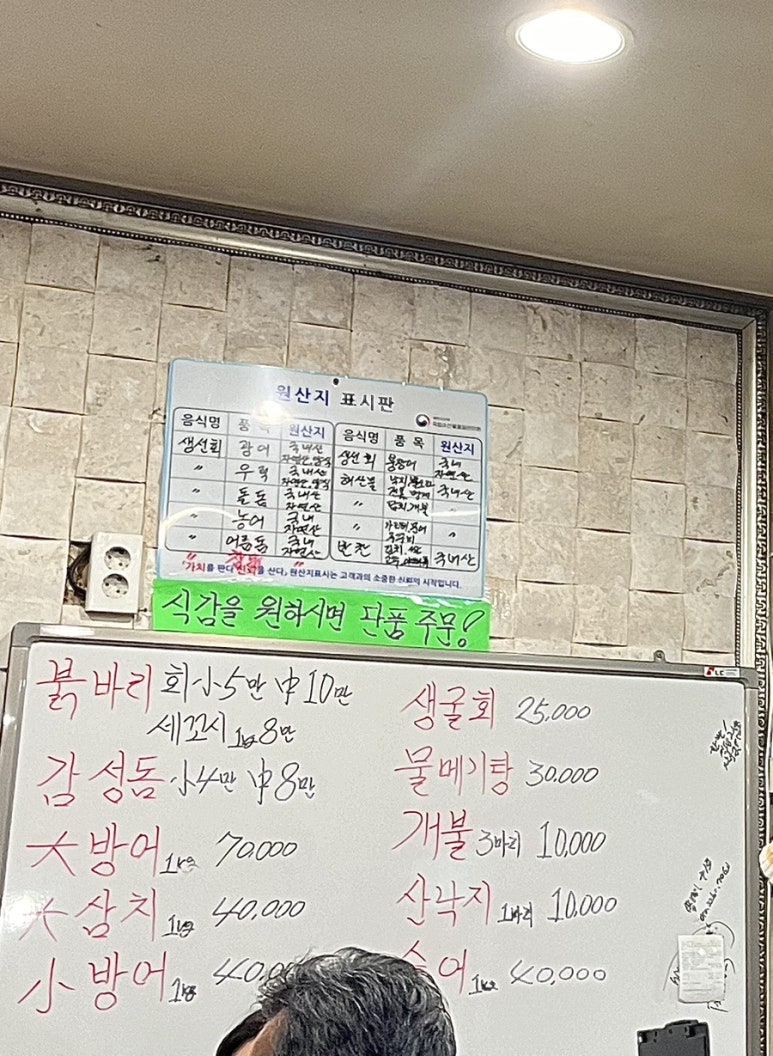 원산지 표시판
음식명 품목 원산지 음식명 품목 원산지
생선회 광어 국내산 자연산,양식 생선회 국내 자연산
〃 우럭 국내산 자연산,양식 해산물 국내산
〃 돌돔 국내산 자연산 〃
〃 농어 국내 자연산 〃 〃
〃 어름돔 국내 자연산 반찬 김치 국내산
"가치를 판다 신뢰를 산다", 원산지표시는 고객과의 소중한 신뢰의 시작입니다.
식감을 원하시면 단품 주문!
붉바리 회 小5만 中10만
세꼬시 1kg 8만
감성돔 小4만 中8만
大방어 1kg 70,000
大삼치 1kg 40,000
小방어 1kg 40,00
생굴회 25,000
물메기탕 30,000
개불 3마리 10,000
산낙지 1마리 10,000
어 1kg 40,000